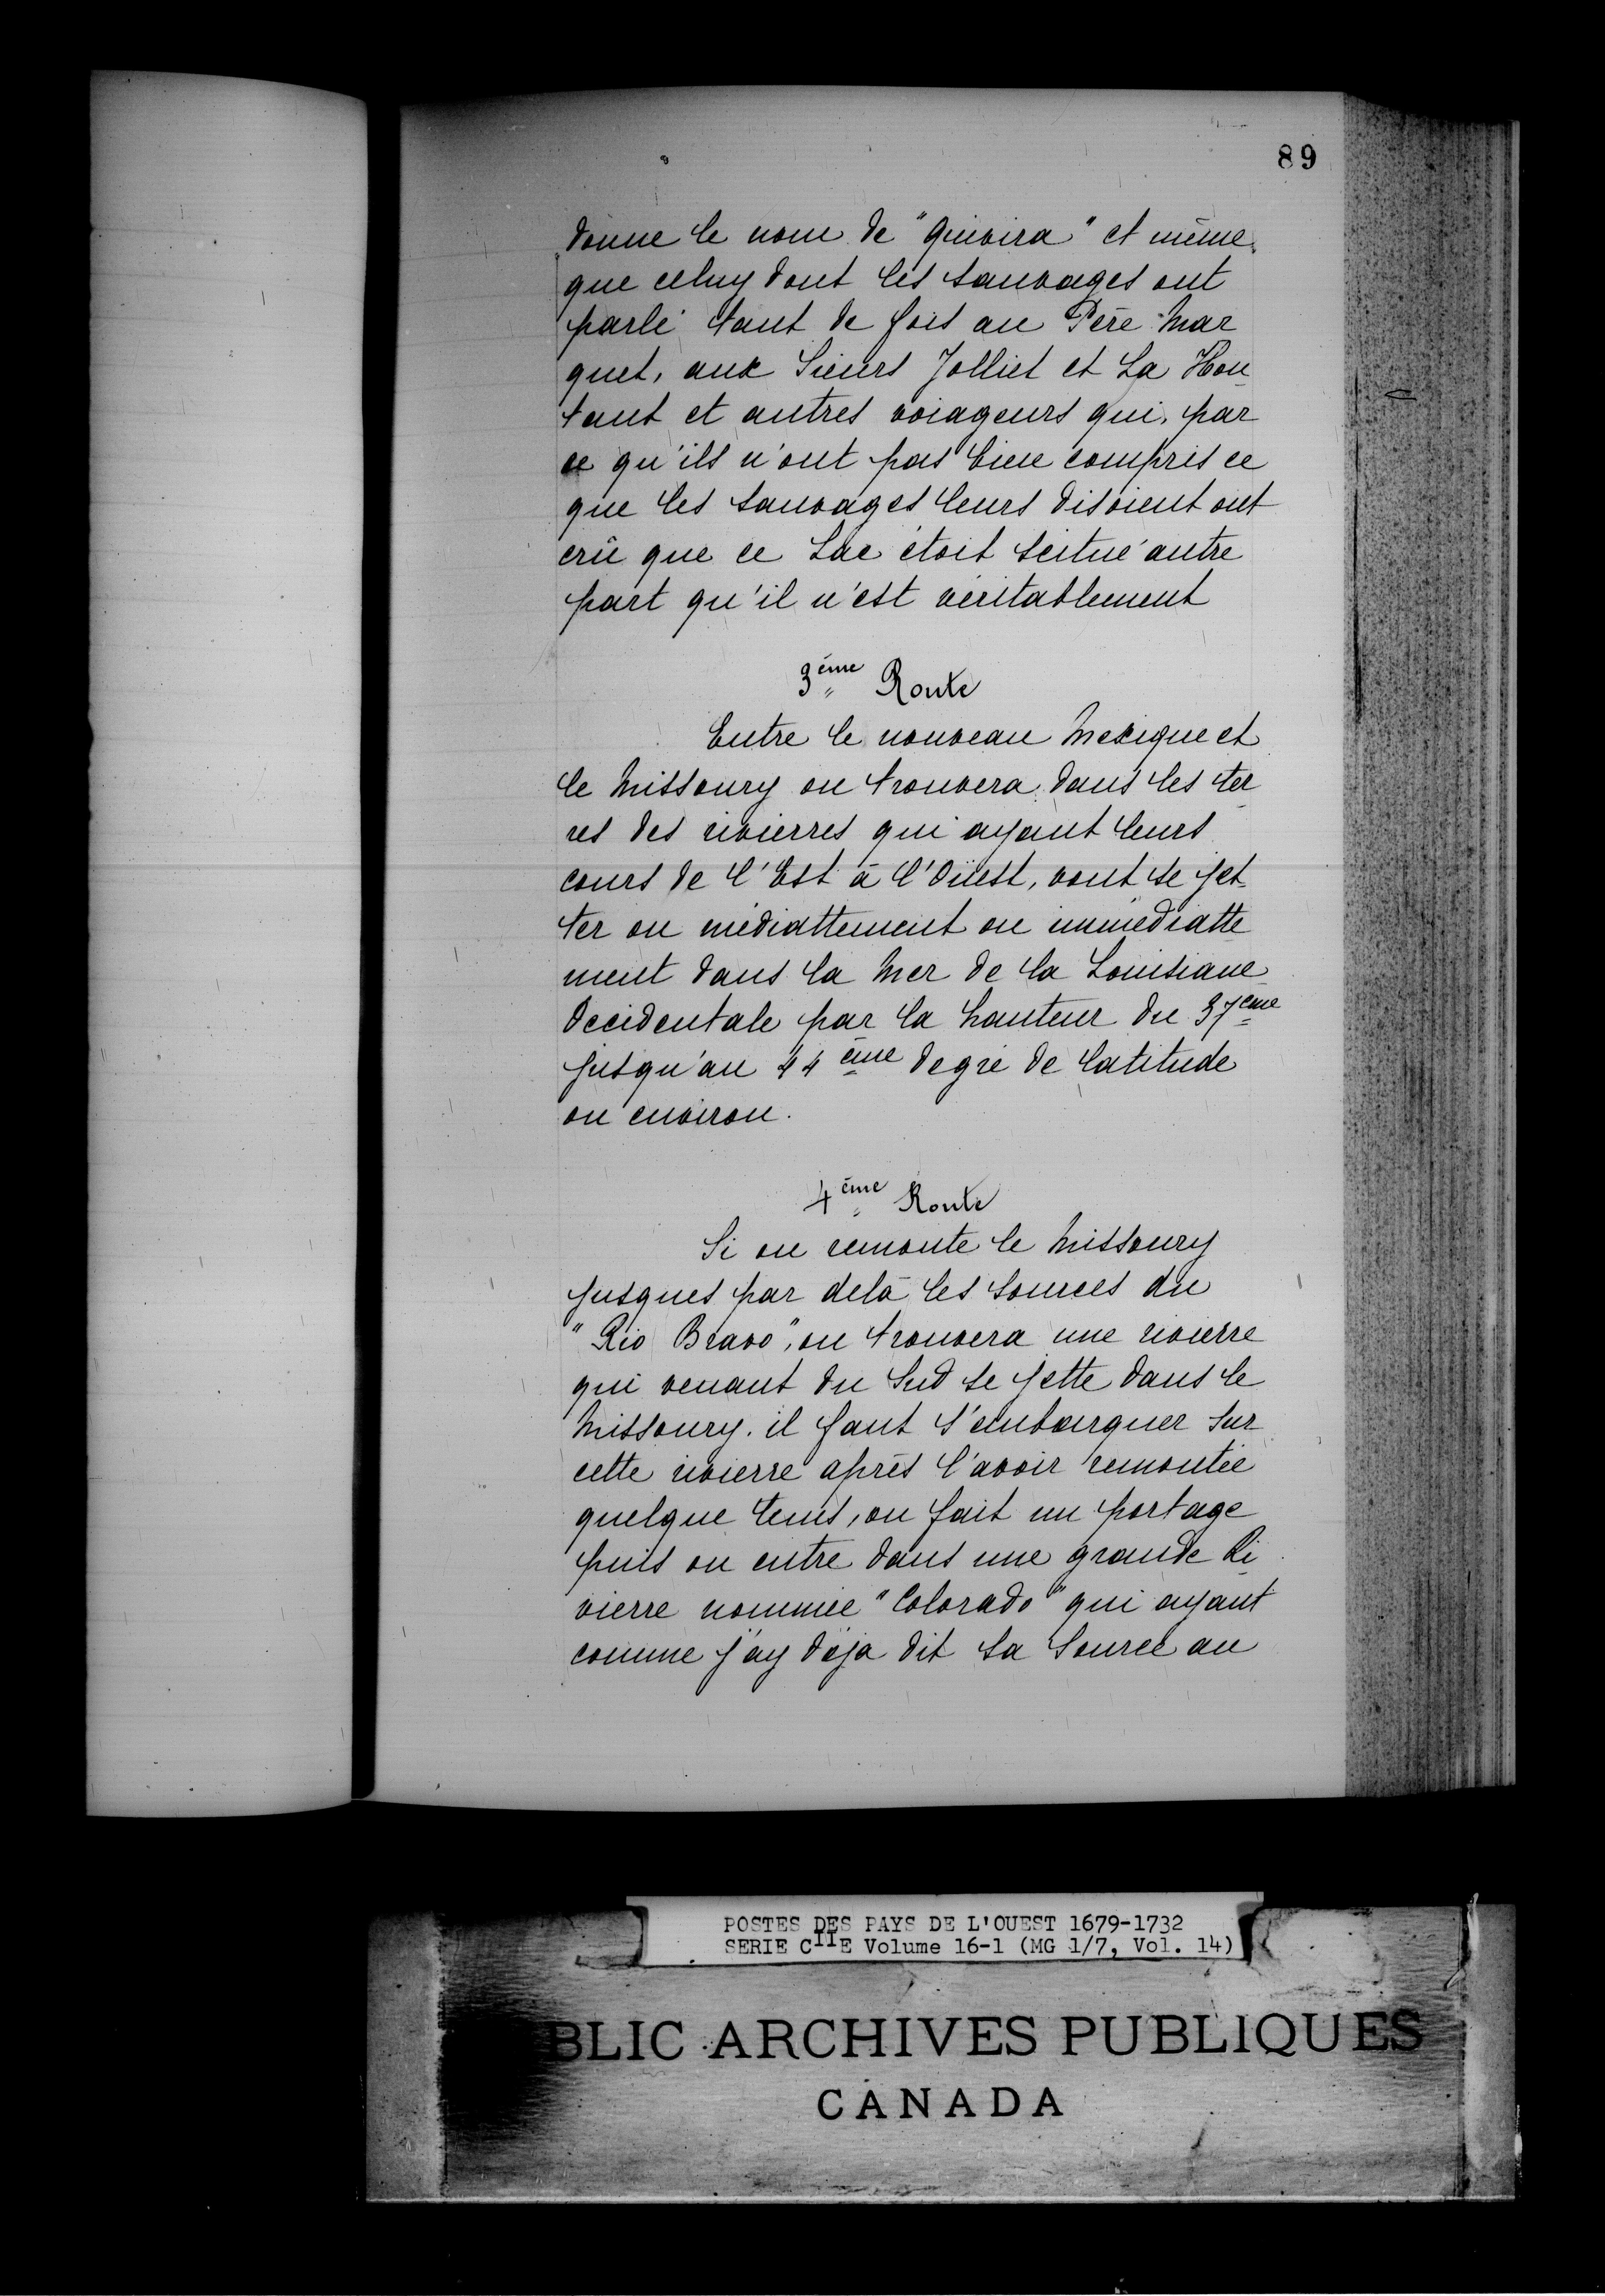 89
donne le nom de "Quivira" et même
que celuy dont les sauvages ont
parlé tant de fois au Père Mar
quet, aux Sieurs Jolliet et La Hon
tant et autres voiageurs qui, par
ce qu'ils n'ont pas bien compris ce
que les sauvages leurs disoient ont
crû que ce Lac étoit scitué autre
part qu'il n'est véritablement
3ème Route
Entre le nouveau Mexique et
le Missoury on trouvera dans les ter
res des rivierres qui ayant leurs
cours de l'Est à l'Oüest, vont se jet
ter ou médiattement ou immédiatte
ment dans la Mer de la Louisiane
Occidentale par la hauteur du 37ème
jusqu'au 44ème degré de latitude
ou environ.
4ème Route
Si on remonte le Missoury
jusques par delà les sources du
"Rio Bravo", on trouvera une rivierre
qui venant du Sud se jette dans le
Missoury. il faut s'embarquer sur
cette rivierre après l'avoir remontée
quelque tems, on fait un portage
puis on entre dans une grande Ri
vierre nommée "Colorado" qui ayant
comme j'ay déja dit sa Source au
POSTES DES PAYS DE L'OUEST 1679-1732
SERIE CIIE Volume 16-1 (MG 1/7, Vol. 14)
BLIC ARCHIVES PUBLIQUES
CANADA